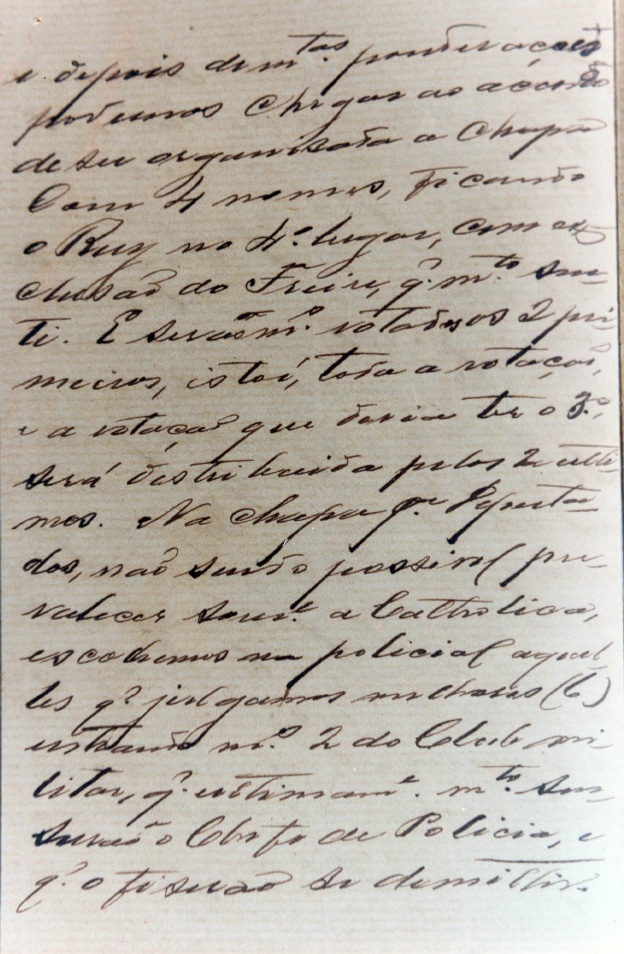 e depois de m.tas ponderações
podemos chegar ao acordo
de ser organisada a Chapa
Com 4 nomes, ficando
o Ruy no 4.º lugar, com ex-
clusão do Freire, q.' m.to sen-
ti. E serão m.º votados os 2 pri-
meiros, isto é, toda a votação,
e a votação que devia ter o 3.º,
será distribuida pelos 2 ulti-
mos. Na chapa p.ª Deputa-
dos, não sendo possivel pre-
valecer som.e a Catholica,
escolhemos na policial aquel-
les q.' julgamos melhores (6)
entrando n.º 2 do Club mi-
litar, q.' ultimam.e m.to
o Chefe de Policia, e
q.' o fiserão se demittir.